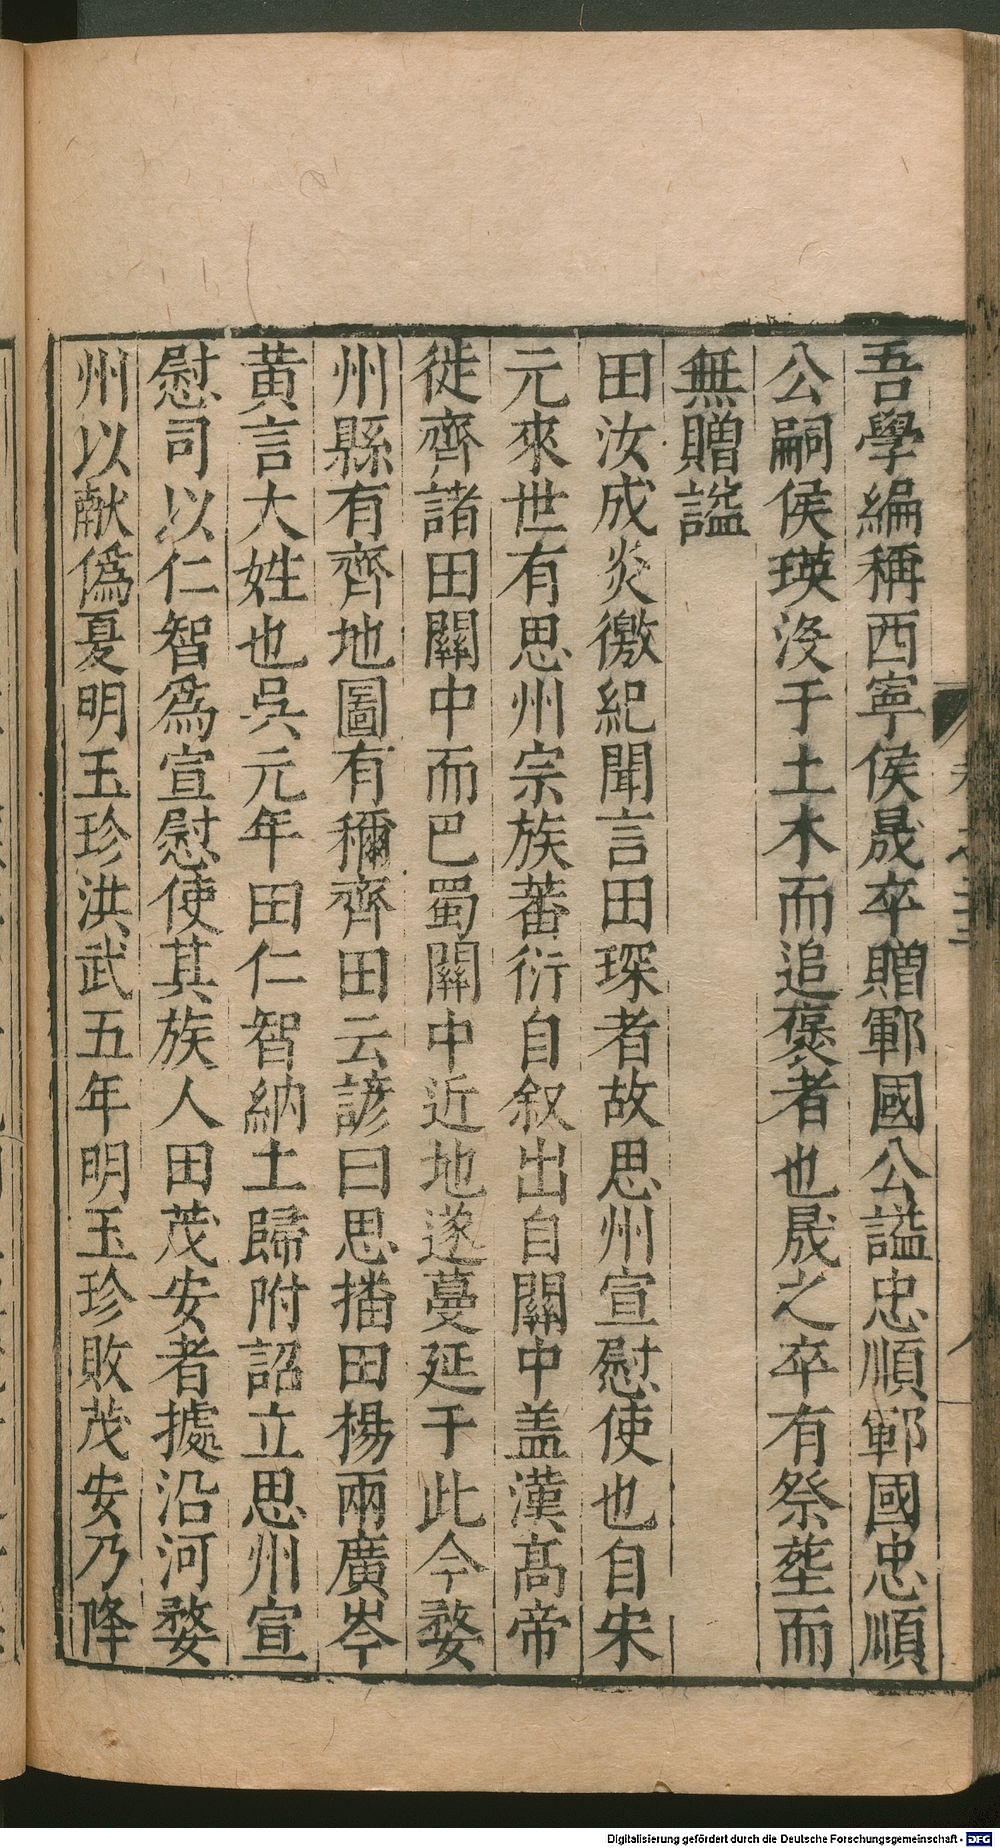 吾學編稱西寧侯晟卒贈鄆國公謚忠順鄆國忠順
公嗣侯瑛沒于土木而追襃者也晟之卒有祭塟而
無贈謚
田汝成炎徼紀聞言田琛者故思州宣慰使也自宋
元來世有思州宗族蕃衍自叙出自關中盖漢高帝
徙齊諸田關中而巴蜀關中近地遂蔓延于此今婺
州縣有齊地圖有穪齊田云諺曰思播田楊兩廣岑
黃言大姓也吳元年田仁智納土歸附詔立思州宣
慰司以仁智爲宣慰使其族人田茂安者據沿河婺
州以献僞夏明玉珍洪武五年明玉珍敗茂安乃降
Digitalisierung gefördert durch die Deutsche Forschungsgemeinschaft - DFG